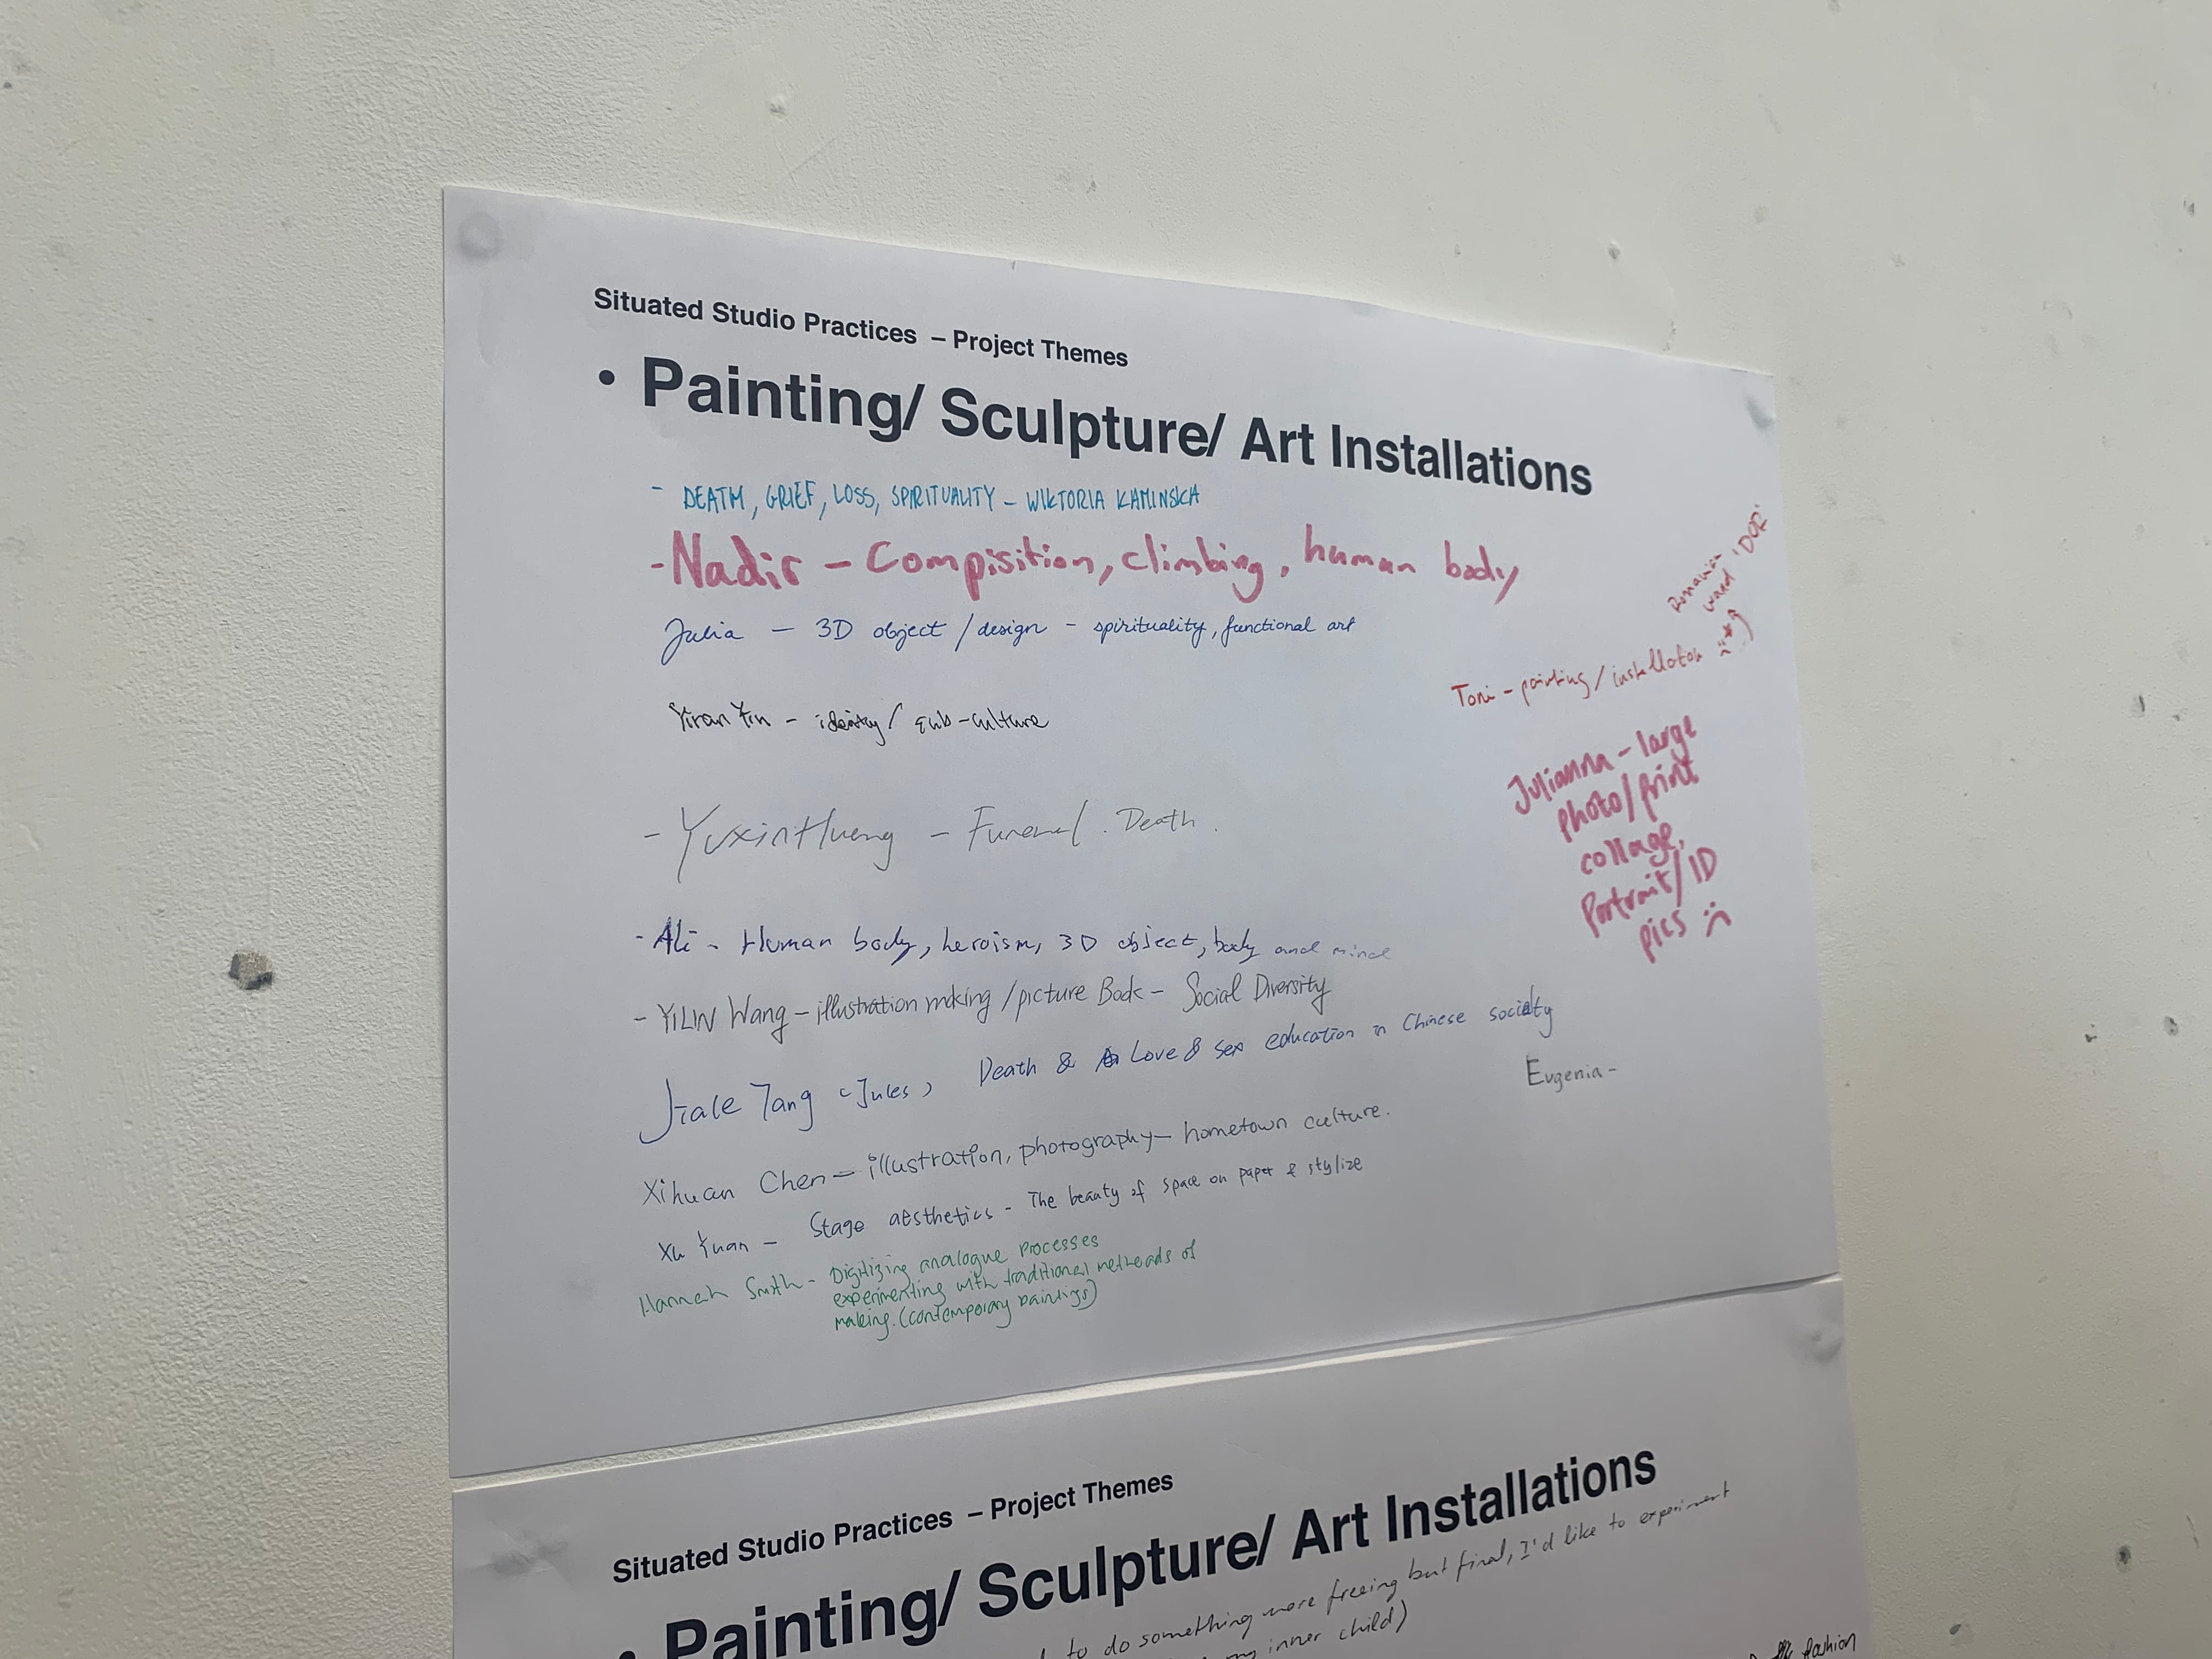 Situated Studio Practices – Project Themes
• Painting/ Sculpture/ Art Installations
- DEATH, GRIEF, LOSS, SPIRITUALITY – WIKTORIA KAMINSKA
- Nadir – Compisition, climbing, human body
Julia – 3D object / design – spirituality, functional art
Yiran Yin – identity / sub-culture
- Yuxin Huang – Funeral. Death.
- Ali - Human body, heroism, 3D object, body and mind
- YILIN Wang – illustration making / picture Book – Social Diversity
Jiale Tang (Jules) Death & Love & sex education in Chinese society
Xihuan Chen – illustration, photography – hometown culture.
Xu Yuan – Stage aesthetics - The beauty of space on paper & stylize
Hannah Smith - Digitizing analogue processes
experimenting with traditional metheads of
making. (contemporary paintings)
Romanian
word 'DOR'
Toni – painting / installation
Julianna – large
photo/print
collage,
Portrait/ID
pics
Evgenia –
Situated Studio Practices – Project Themes
• Painting/ Sculpture/ Art Installations
to do something more freeing but final, I'd like to experiment
my inner child)
fashion